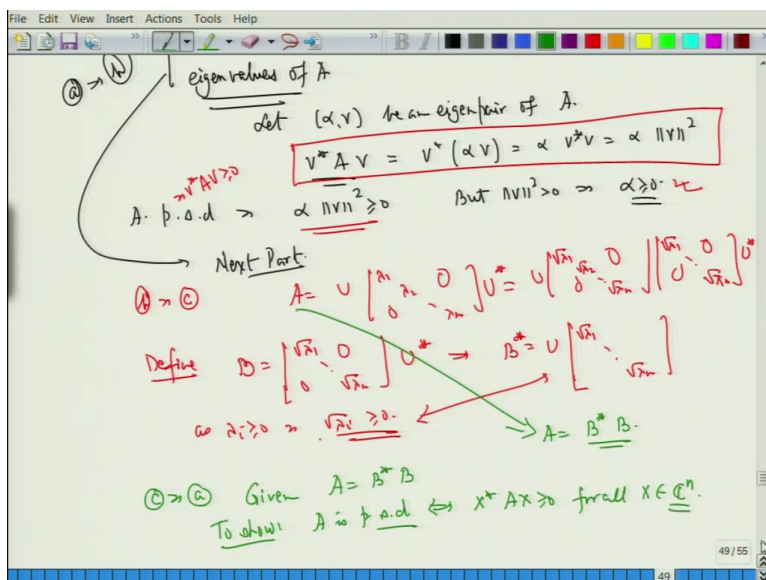 File Edit View Insert Actions Tools Help
ⓐ ⇒ ⓑ eigenvalues of A
Let (α, v) be an eigenpair of A.
v* A v = v* (α v) = α v* v = α ||v||²
⇒ v* A v ≥ 0
A. p.s.d ⇒ α ||v||² ≥ 0 But ||v||² > 0 ⇒ α ≥ 0.
Next Part.
ⓑ ⇒ ⓒ A = U [λ₁ λ₂ 0 0 ⋱ λₙ] U* = U [√λ₁ √λ₂ 0 0 ⋱ √λₙ] [√λ₁ 0 0 ⋱ √λₙ] U*
Define B = [√λ₁ 0 0 ⋱ √λₙ] U* ⇒ B* = U [√λ₁ ⋱ √λₙ]
as λᵢ ≥ 0 ⇒ √λᵢ ≥ 0.
⇒ A = B* B.
ⓒ ⇒ ⓐ Given A = B* B
To show: A is p.s.d ⇔ x* A x ≥ 0 for all x ∈ ℂⁿ.
49/55
49